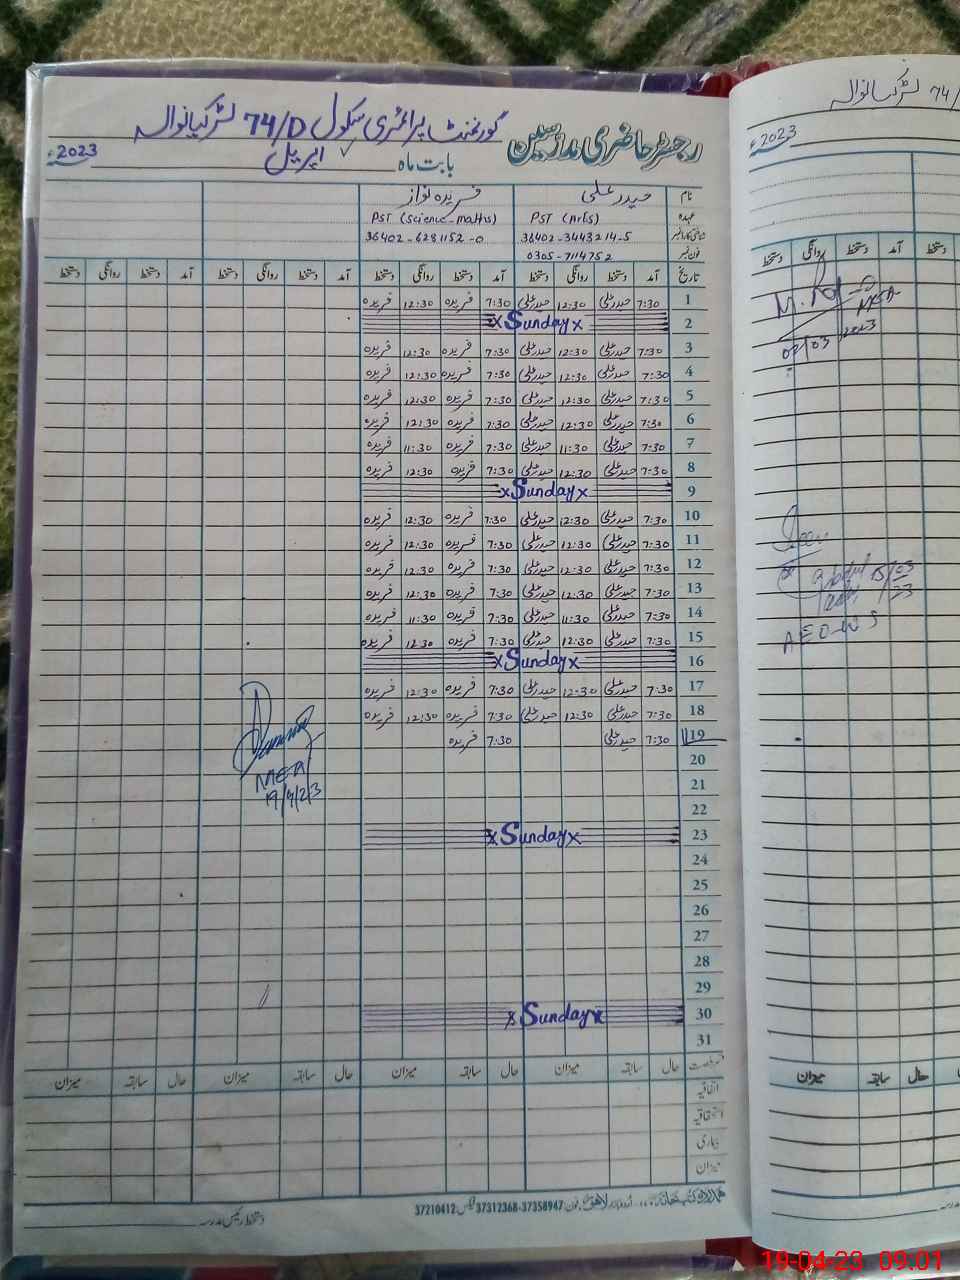 گورنمنٹ پرائمری سکول 74/D لڑکیانوالہ
رجسٹر حاضری مدرسین
بابت ماہ اپریل 2023ء
نام حیدر علی فریدہ نواز
عہدہ PST (Arts) PST (Science-maths)
شناختی کارڈ نمبر 36402-3443214-5 36402-6281152-0
فون نمبر 0305-7114752
تاریخ آمد دستخط روانگی دستخط آمد دستخط روانگی دستخط آمد دستخط روانگی دستخط آمد دستخط روانگی دستخط
1 7:30 حیدر علی 12:30 حیدر علی 7:30 فریدہ 12:30 فریدہ
2 x Sunday x
3 7:30 حیدر علی 12:30 حیدر علی 7:30 فریدہ 12:30 فریدہ
4 7:30 حیدر علی 12:30 حیدر علی 7:30 فریدہ 12:30 فریدہ
5 7:30 حیدر علی 12:30 حیدر علی 7:30 فریدہ 12:30 فریدہ
6 7:30 حیدر علی 12:30 حیدر علی 7:30 فریدہ 12:30 فریدہ
7 7:30 حیدر علی 11:30 حیدر علی 7:30 فریدہ 11:30 فریدہ
8 7:30 حیدر علی 12:30 حیدر علی 7:30 فریدہ 12:30 فریدہ
9 x Sunday x
10 7:30 حیدر علی 12:30 حیدر علی 7:30 فریدہ 12:30 فریدہ
11 7:30 حیدر علی 12:30 حیدر علی 7:30 فریدہ 12:30 فریدہ
12 7:30 حیدر علی 12:30 حیدر علی 7:30 فریدہ 12:30 فریدہ
13 7:30 حیدر علی 12:30 حیدر علی 7:30 فریدہ 12:30 فریدہ
14 7:30 حیدر علی 11:30 حیدر علی 7:30 فریدہ 11:30 فریدہ
15 7:30 حیدر علی 12:30 حیدر علی 7:30 فریدہ 12:30 فریدہ
16 x Sunday x
17 7:30 حیدر علی 12:30 حیدر علی 7:30 فریدہ 12:30 فریدہ
18 7:30 حیدر علی 12:30 حیدر علی 7:30 فریدہ 12:30 فریدہ
19 7:30 حیدر علی 7:30 فریدہ
MEA
19/4/23
20
21
22
23 x Sunday x
24
25
26
27
28
29
30 x Sunday x
31
رخصت حال سابقہ میزان حال سابقہ میزان حال سابقہ میزان حال سابقہ میزان
اتفاقیہ
استحقاقیہ
بیماری
میزان
اردو بازار لاہور فون: 37312368-37358947 فیکس: 37210412
دستخط رئیس مدرسہ
74/ لڑکیانوالہ
2023ء
آمد دستخط روانگی دستخط
02/03/2023
15/03/23
AEO
حال سابقہ میزان
19-04-23 09:01